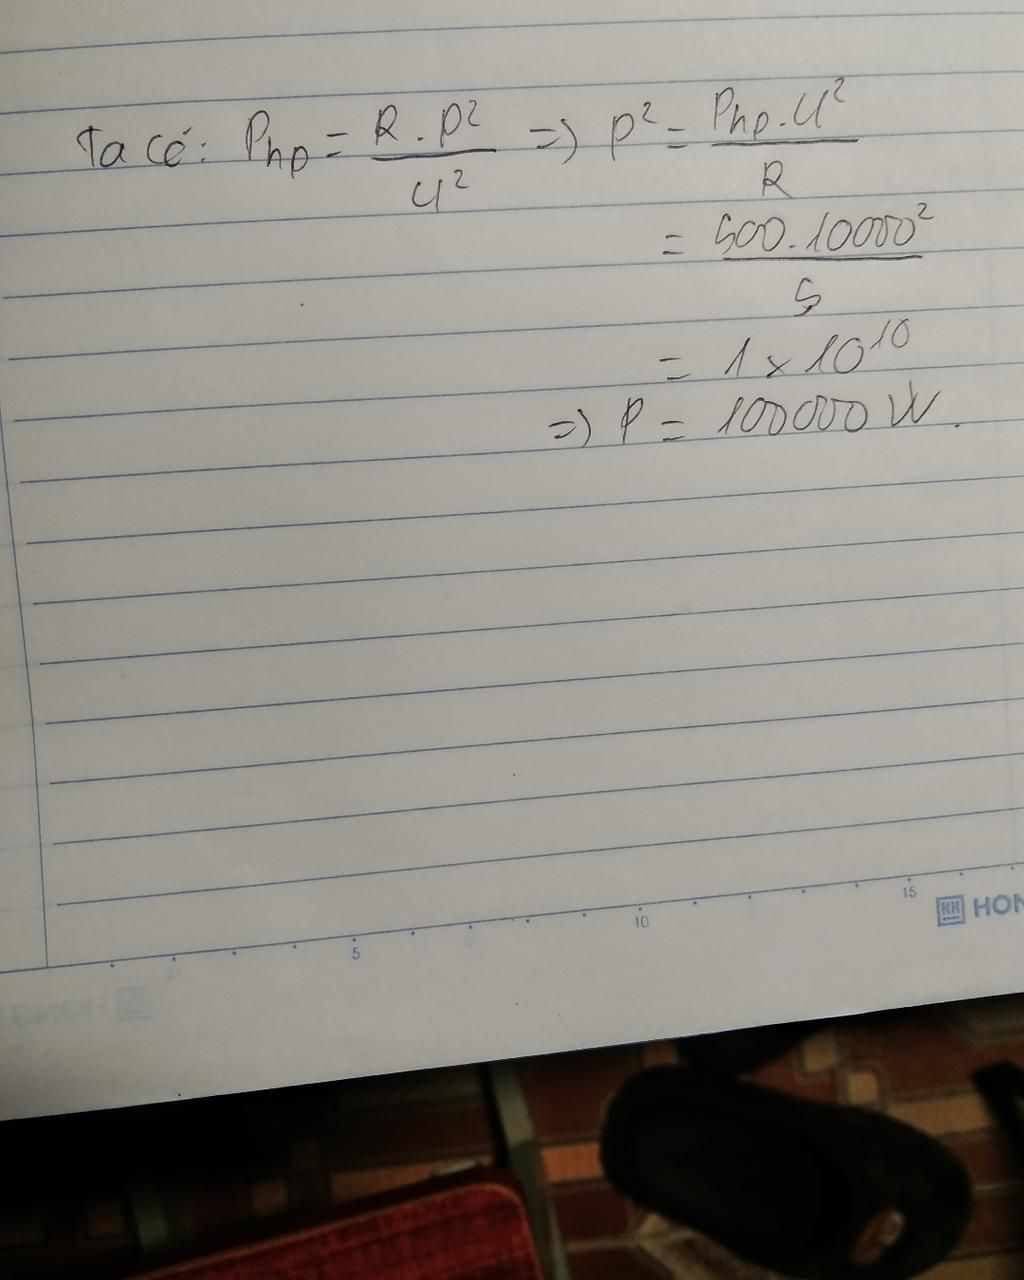 Ta có: Php = R . P² / U² => P² = Php . U² / R
= 500 . 10000² / 5
= 1 x 10¹⁰
=> P = 100000 W.
5 10 15
HON